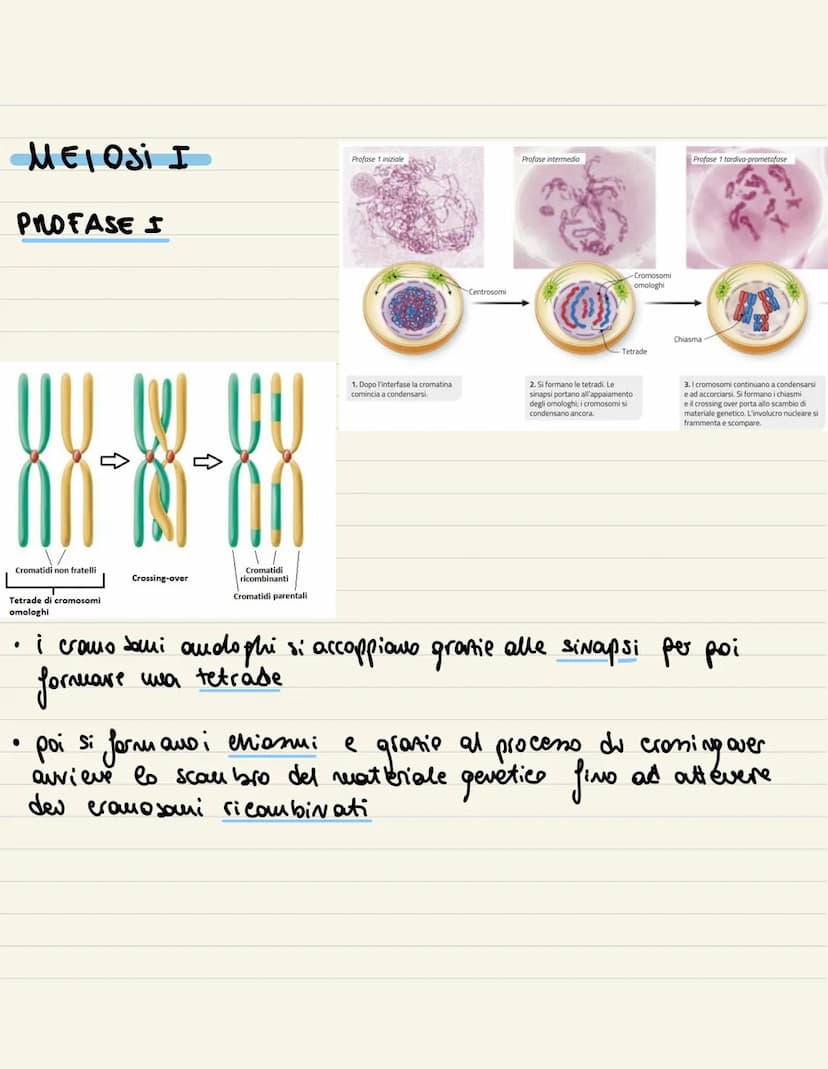 MEIOSI I
PROFASE I
Profase 1 iniziale
Profase intermedia
Profase 1 tardiva-prometafase
Centrosomi
Cromosomi
omologhi
Tetrade
Chiasma
1. Dopo l'interfase la cromatina
comincia a condensarsi.
2. Si formano le tetradi. Le
sinapsi portano all'appaiamento
degli omologhi; i cromosomi si
condensano ancora.
3. I cromosomi continuano a condensarsi
e ad accorciarsi. Si formano i chiasmi
e il crossing over porta allo scambio di
materiale genetico. L'involucro nucleare si
frammenta e scompare.
Cromatidi non fratelli
Tetrade di cromosomi
omologhi
Crossing-over
Cromatidi
ricombinanti
Cromatidi parentali
• i cromosomi omologhi si accoppiano grazie alle sinapsi per poi
formare una tetrade
• poi si formano i chiasmi e grazie al processo di crossing over
avviene lo scambio del materiale genetico fino ad ottenere
dei cromosomi ricombinati